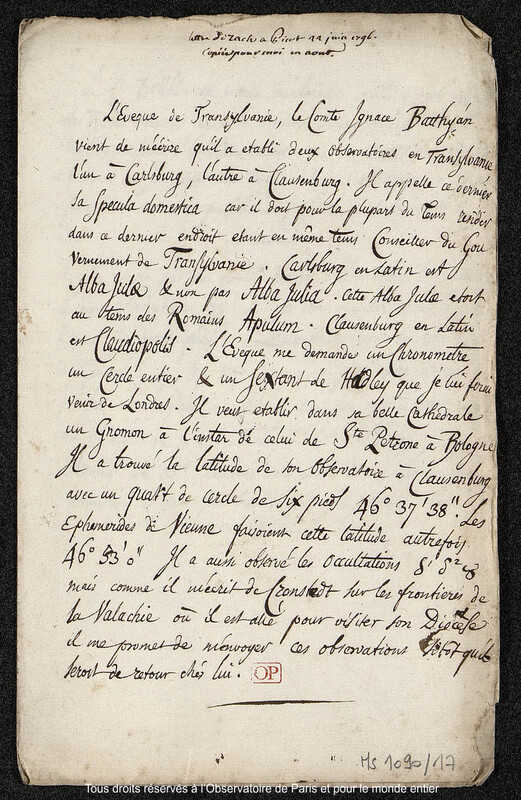 lettre de zach a Pictet 22 juin 1796.
Copiée pour moi en aout.
L'Eveque de Transylvanie, le Comte Ignace Batthyán
vient de m'écrire qu'il a etabli deux observatoires en Transylvanie
l'un à Carlsburg, l'autre à Clausenburg. Il appelle ce dernier
Sa Specula domestica car il doit pour la plupart du Tems resider
dans ce dernier endroit etant en même tems Conseiller du Gou
vernement de Transylvanie. Carlsburg en Latin est
Alba Julæ & non pas Alba Julia. Cette Alba Julæ etoit
au tems des Romains Apulum. Clausenburg en Latin
est Claudiopolis. L'Eveque me demande un Chronometre
un Cercle entier & un Sextant de Hadley que je lui ferai
venir de Londres. Il veut etablir dans sa belle Cathedrale
un Gnomon à l'instar de celui de Ste Petrone à Bologne
Il a trouvé la latitude de son observatoire à Clausenburg
avec un quart de cercle de six pieds 46° 37' 38". Les
Ephemerides de Vienne faisoient cette latitude autrefois
46° 53' 0" Il a aussi observé les occultations
mais comme il m'ecrit de Cronstedt sur les frontieres de
la Valachie où il est allé pour visiter son Diocèse
il me promet de m'envoyer ces observations sitot qu'il
seront de retour chés lui. OP
Ms 1090/17
Tous droits réservés à l'Observatoire de Paris et pour le monde entier